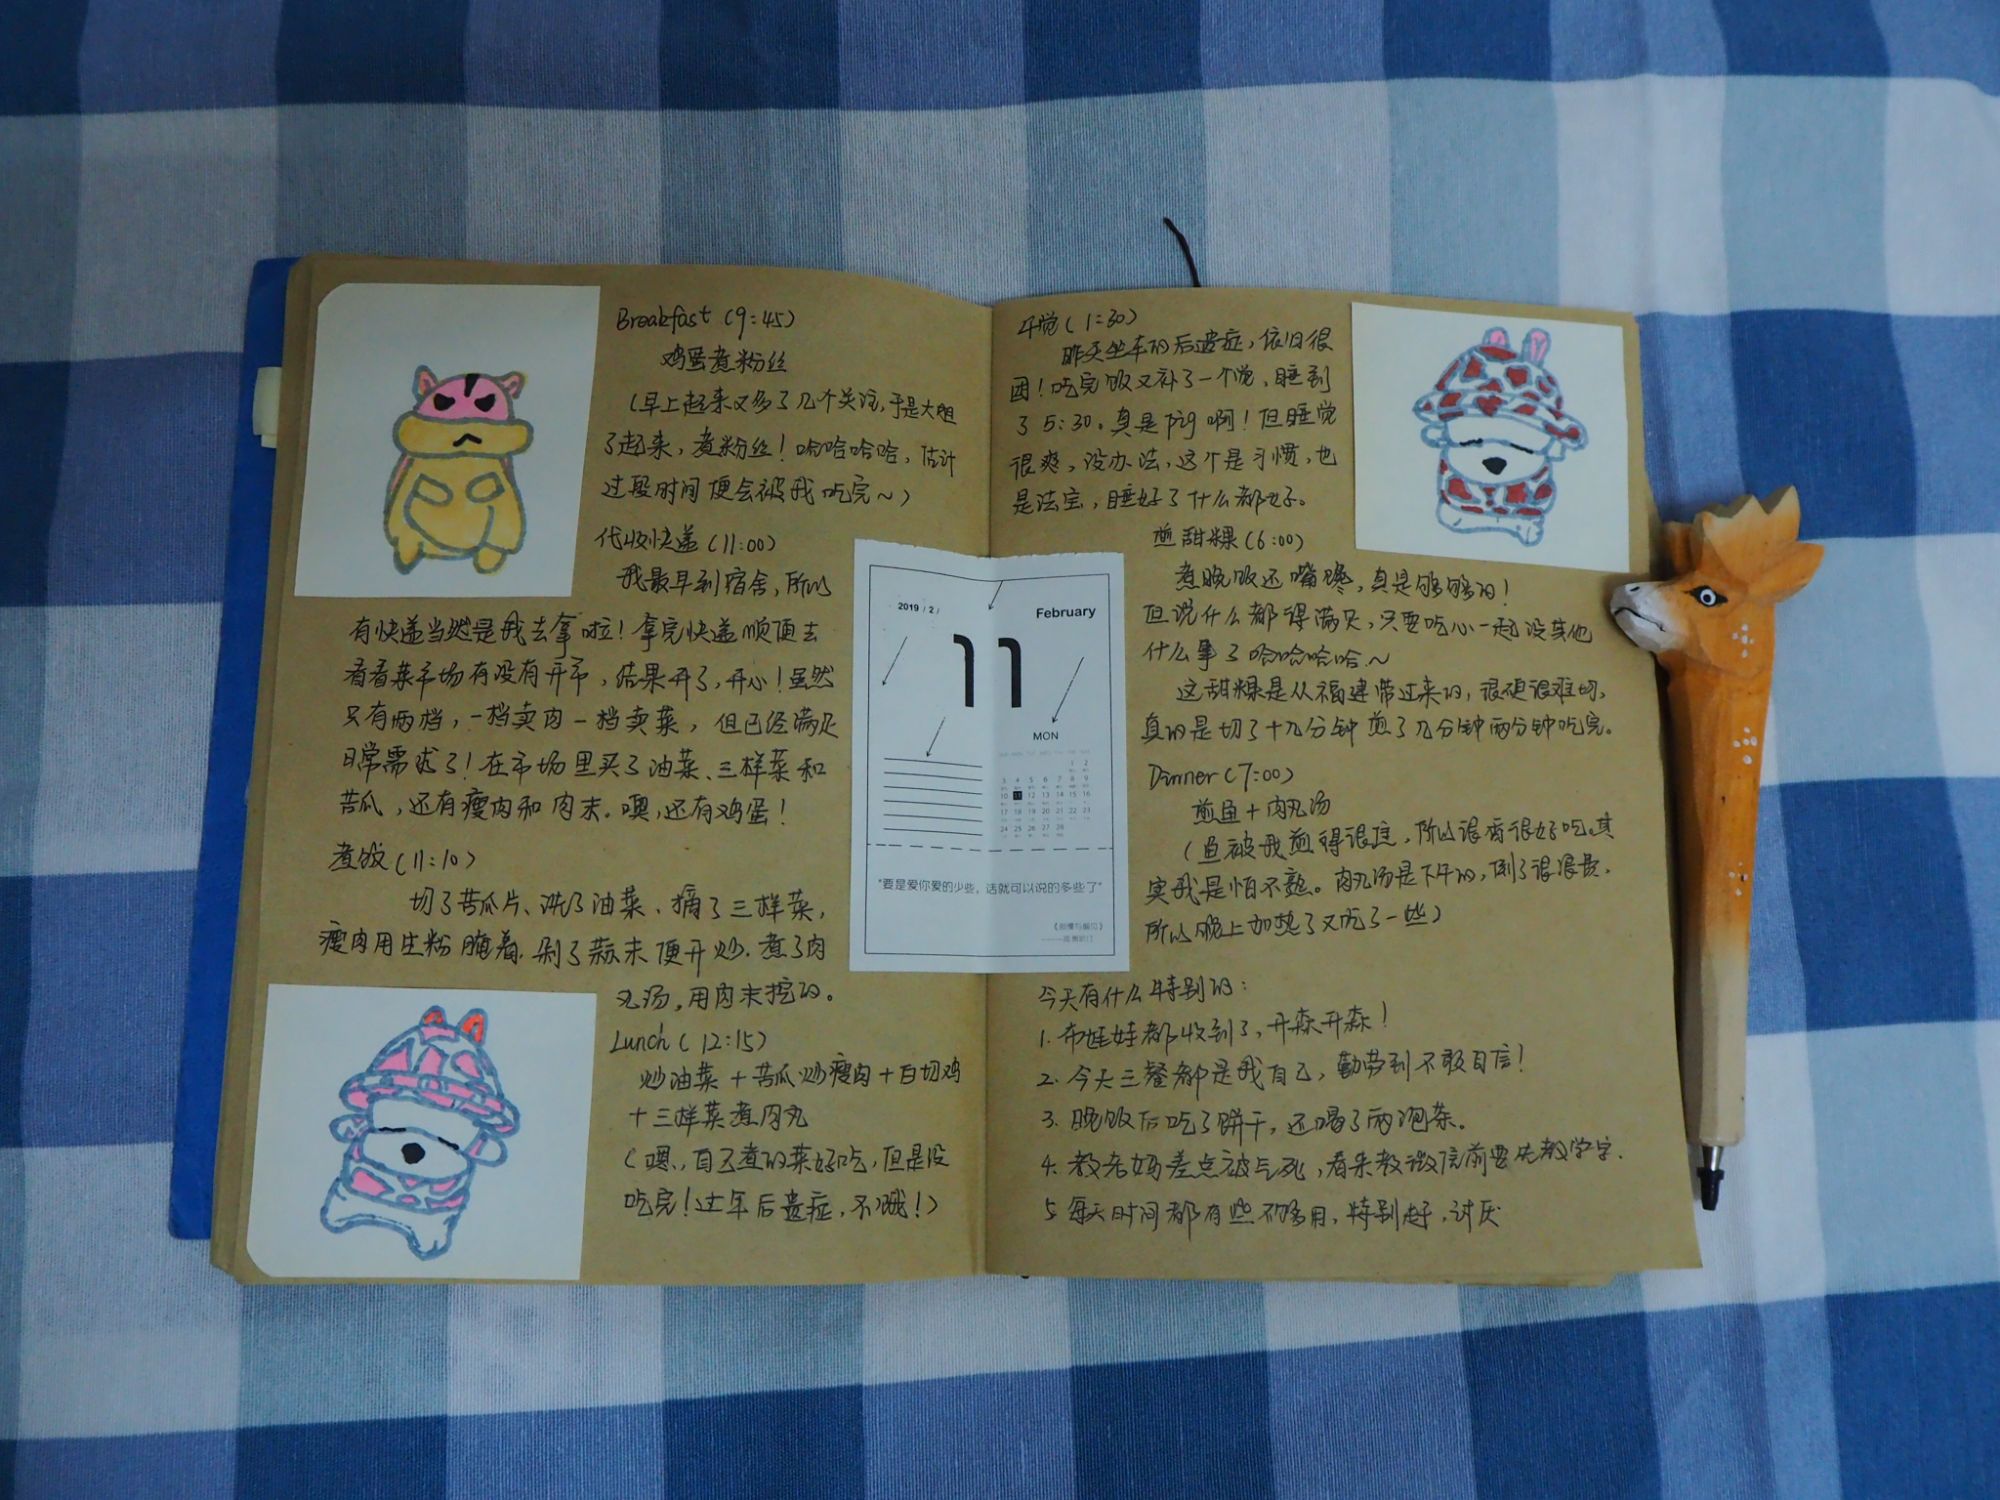 Breakfast (9:45)
鸡蛋煮粉丝
(早上起来又多了几个关注,于是大胆
了起来,煮粉丝!哈哈哈哈,估计
过段时间便会被我吃完~)
代收快递(11:00)
我最早到宿舍,所以
有快递当然是我去拿啦!拿完快递顺道去
看看菜市场有没有开市,结果开了,开心!虽然
只有两档,一档卖肉一档卖菜,但已经满足
日常需求了!在市场里买了油菜、三样菜和
苦瓜,还有瘦肉和肉末。噢,还有鸡蛋!
煮饭(11:10)
切了苦瓜片、洗了油菜、摘了三样菜,
瘦肉用生粉腌着,剁了蒜末便开炒.煮了肉
丸汤,用肉末挖的。
Lunch (12:15)
炒油菜+苦瓜炒瘦肉+白切鸡
+三样菜煮肉丸
(嗯,自己煮的菜好吃,但是没
吃完!过年后遗症,不饿!)
2019 / 2 /
February
11
MON
SUN MON TUE WED THU FRI SAT
1 2
3 4 5 6 7 8 9
10 11 12 13 14 15 16
17 18 19 20 21 22 23
24 25 26 27 28
"要是爱你爱的少些,话就可以说的多些了"
《傲慢与偏见》
午觉(1:30)
昨天坐车的后遗症,依旧很
困!吃完饭又补了一个觉,睡到
了5:30。真是pig啊!但睡觉
很爽,没办法,这个是习惯,也
是法宝,睡好了什么都好。
煎甜粿(6:00)
煮晚饭还嘴馋,真是够够的!
但说什么都得满足,只要吃心一起没其他
什么事了哈哈哈哈~
这甜粿是从福建带过来的,很硬很难切,
真的是切了十几分钟煎了几分钟两分钟吃完。
Dinner(7:00)
煎鱼+肉丸汤
(鱼被我煎得很焦,所以很香很好吃.其
实我是怕不熟。肉丸汤是下午的,倒了很浪费,
所以晚上加热了又吃了一些)
今天有什么特别的:
1.布娃娃都收到了,开森开森!
2.今天三餐都是我自己,勤劳到不敢自信!
3.晚饭后吃了饼干,还喝了两泡茶。
4.教老妈差点被气死,看来教微信前要先教学字.
5.每天时间都有些不够用,特别赶,讨厌